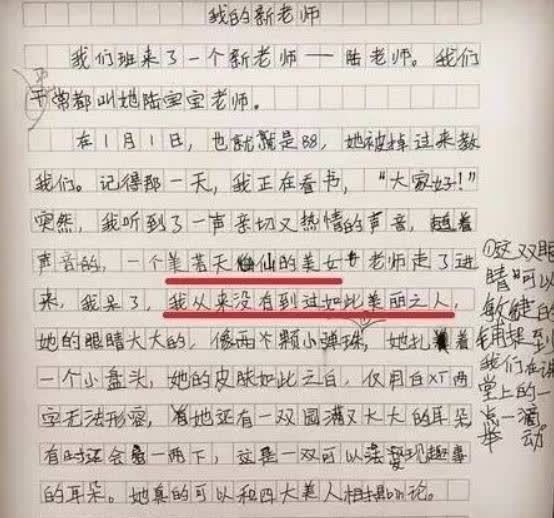 我的新老师
我们班来了一个新老师——陆老师。我们
平常都叫她陆宝宝老师。
在1月1日，也就是88，她被掉过来教
我们。记得那一天，我正在看书，“大家好！”
突然，我听到了一声亲切又热情的声音，随着
声音的，一个美若天仙的美女老师走了进
来，我呆了，我从来没有到过如此美丽之人，
她的眼睛大大的，像两个颗小弹珠，她扎着
一个小盘头，她的皮肤如此之白，仅用白XT两
字无法形容，她还有一双圆满又大大的耳朵，
有时还会一两下，这是一双可以发现趣事
的耳朵。她真的可以和四大美人相提bìn论。
①这双眼
睛可以
敏捷的
捕捉到
我们在课
堂上的一
点一滴
举动